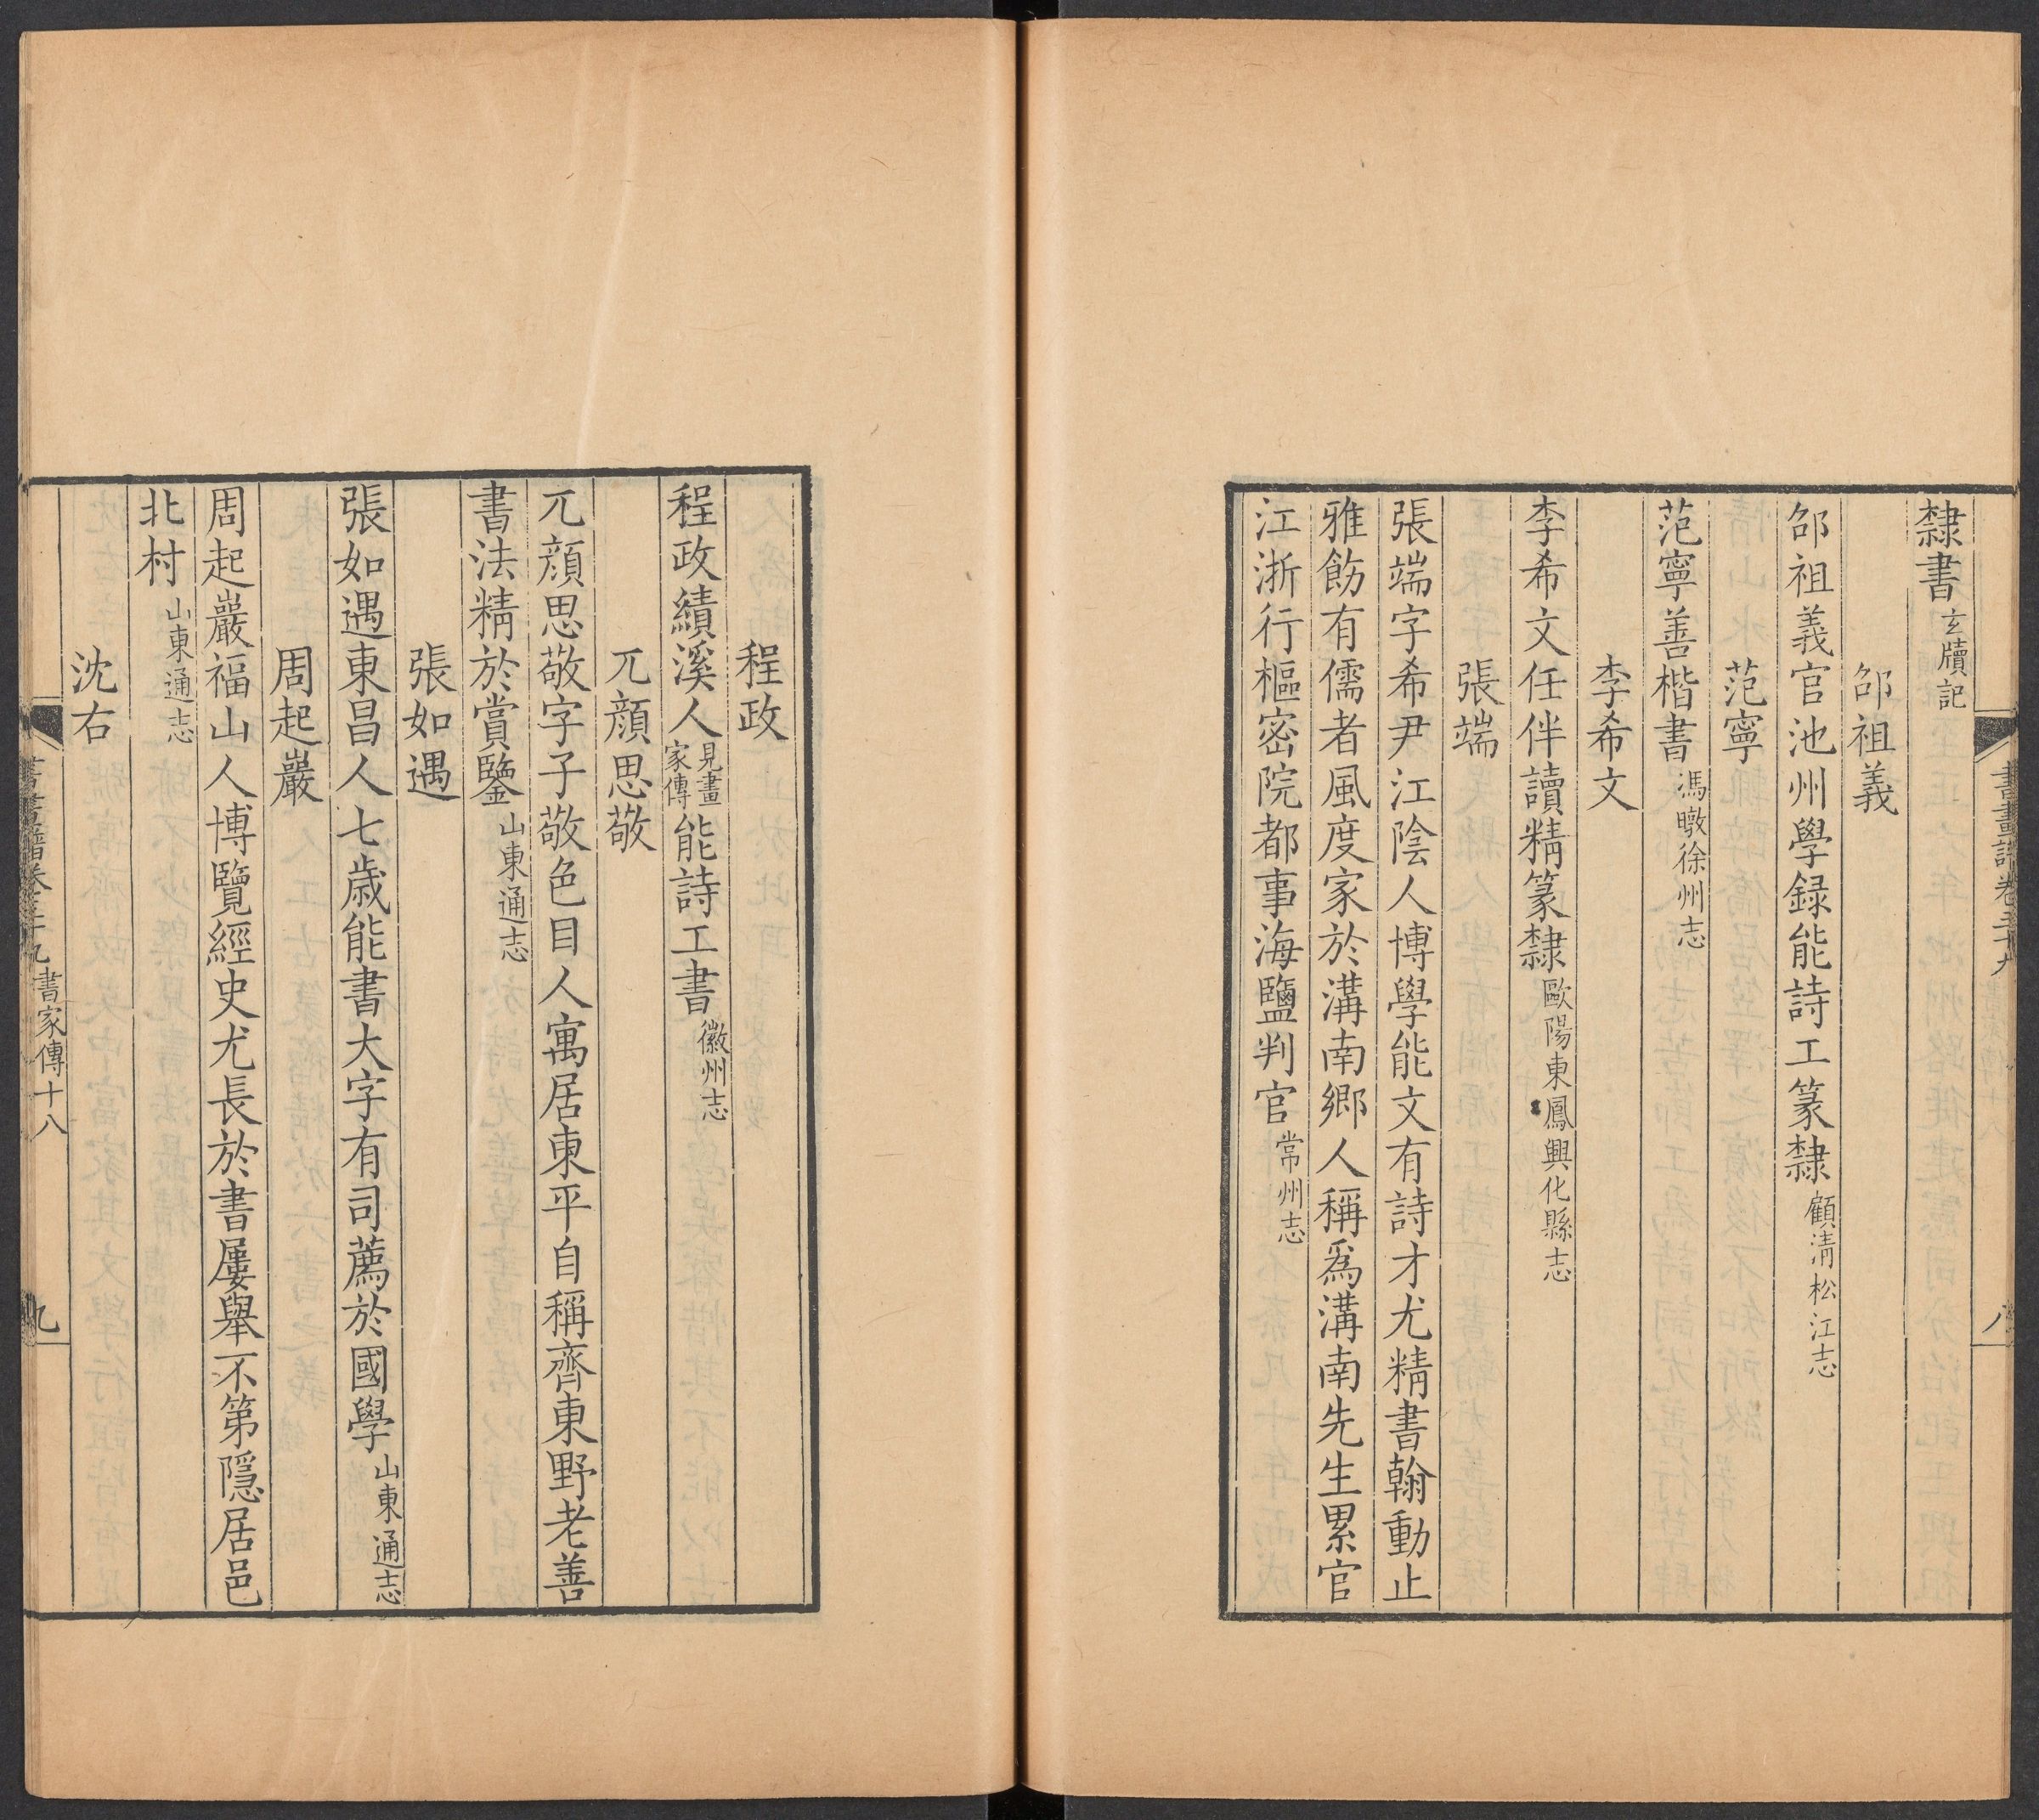 書畫譜卷三十九
八
隸書玄牘記
邰祖義
邰祖義官池州學録能詩工篆隸顧清松江志
范寧
范寧善楷書馮暾徐州志
李希文
李希文任伴讀精篆隸歐陽東鳳興化縣志
張端
張端字希尹江陰人博學能文有詩才尤精書翰動止
雅飭有儒者風度家於溝南鄉人稱爲溝南先生累官
江浙行樞密院都事海鹽判官常州志
程政
程政績溪人見畫家傳能詩工書徽州志
兀顔思敬
兀顔思敬字子敬色目人寓居東平自稱齊東野老善
書法精於賞鑒山東通志
張如遇
張如遇東昌人七歳能書大字有司薦於國學山東通志
周起巖
周起巖福山人博覽經史尤長於書屢舉不第隱居邑
北村山東通志
沈右
書畫譜卷三十九書家傳十八
九